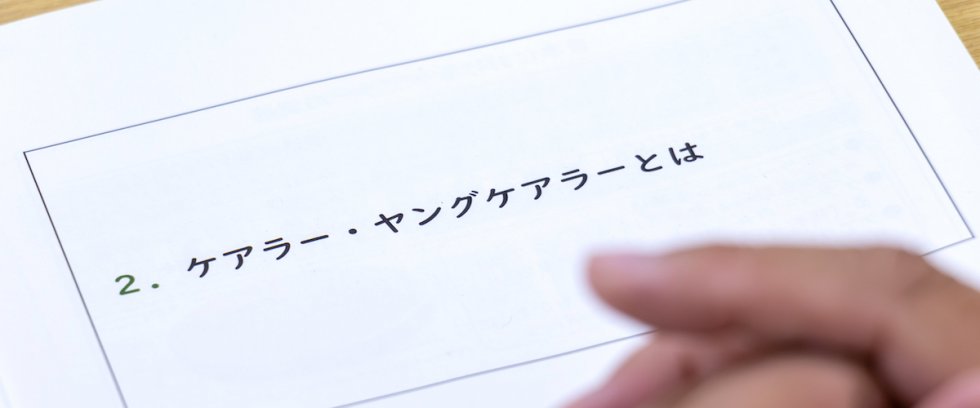 2. ケアラー・ヤングケアラーとは